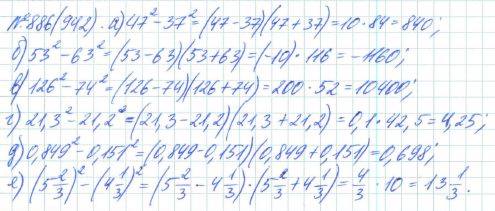 №886(942). а) 47² - 37² = (47 - 37)(47 + 37) = 10 · 84 = 840;
б) 53² - 63² = (53 - 63)(53 + 63) = (-10) · 116 = -1160;
в) 126² - 74² = (126 - 74)(126 + 74) = 200 · 52 = 10400;
г) 21,3² - 21,2² = (21,3 - 21,2)(21,3 + 21,2) = 0,1 · 42,5 = 4,25;
д) 0,849² - 0,151² = (0,849 - 0,151)(0,849 + 0,151) = 0,698;
е) (5 2/3)² - (4 1/3)² = (5 2/3 - 4 1/3) · (5 2/3 + 4 1/3) = 4/3 · 10 = 13 1/3.